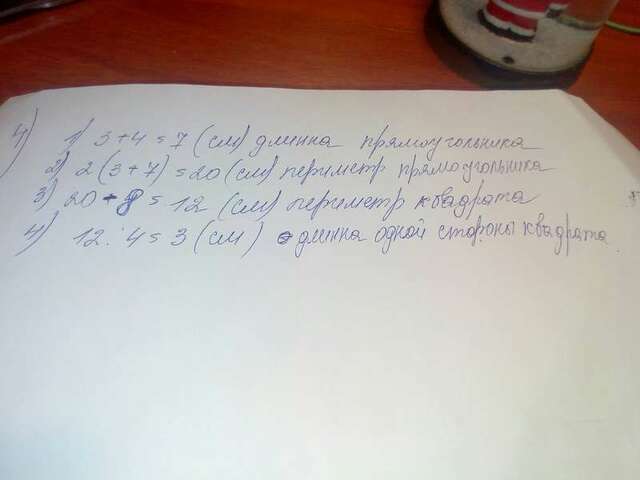 4)
1) 3+4=7 (см) длинна прямоугольника
2) 2(3+7)=20 (см) периметр прямоугольника
3) 20-8=12 (см) периметр квадрата
4) 12:4=3 (см) - длинна одной стороны квадрата